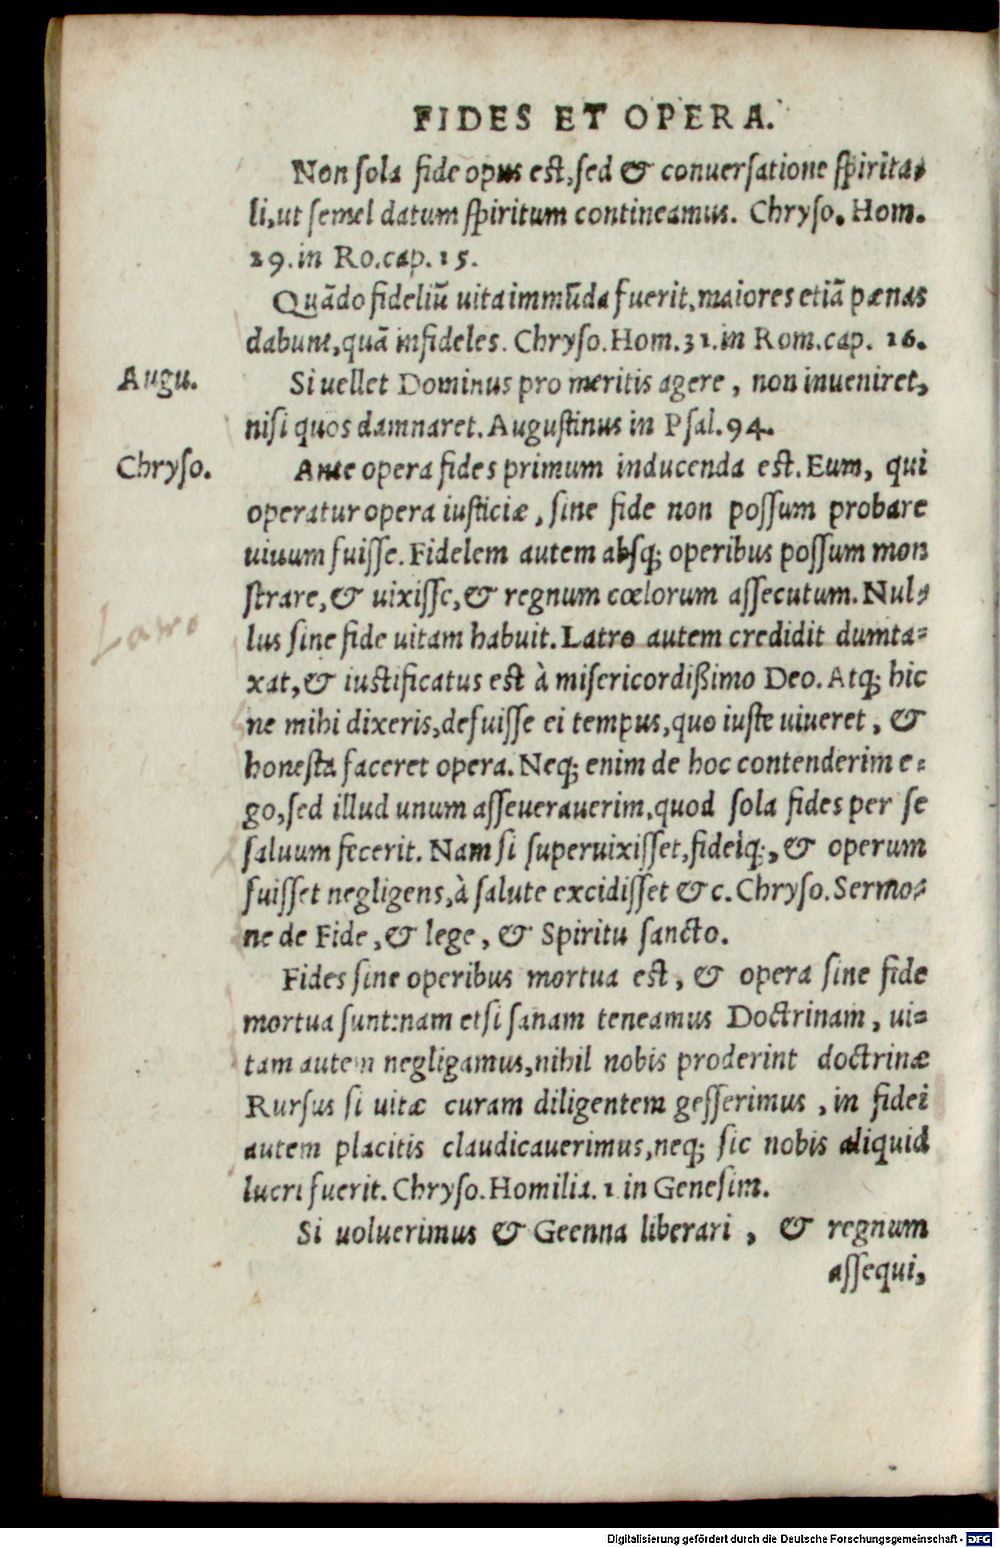 FIDES ET OPERA.
Non sola fide opus est, sed & conuersatione spirita-
li, ut semel datum spiritum contineamus. Chryso. Hom.
29. in Ro. cap. 15.
Quādo fideliū uita immūda fuerit, maiores etiā pœnas
dabunt, quā infideles. Chryso. Hom. 31. in Rom. cap. 16.
Augu.
Si uellet Dominus pro meritis agere, non inueniret,
nisi quos damnaret. Augustinus in Psal. 94.
Chryso.
Ante opera fides primum inducenda est. Eum, qui
operatur opera iusticiæ, sine fide non possum probare
uiuum fuisse. Fidelem autem absq; operibus possum mon
strare, & uixisse, & regnum cœlorum assecutum. Nul-
lus sine fide uitam habuit. Latro autem credidit dumta-
xat, & iustificatus est à misericordißimo Deo. Atq; hic
ne mihi dixeris, defuisse ei tempus, quo iuste uiueret, &
honesta faceret opera. Neq; enim de hoc contenderim e-
go, sed illud unum asseuerauerim, quod sola fides per se
saluum fecerit. Nam si superuixisset, fideiq;, & operum
fuisset negligens, à salute excidisset &c. Chryso. Sermo-
ne de Fide, & lege, & Spiritu sancto.
Fides sine operibus mortua est, & opera sine fide
mortua sunt: nam etsi sanam teneamus Doctrinam, ui-
tam autem negligamus, nihil nobis proderint doctrinæ
Rursus si uitæ curam diligentem gesserimus, in fidei
autem placitis claudicauerimus, neq; sic nobis aliquid
lucri fuerit. Chryso. Homilia. 1 in Genesim.
Si uoluerimus & Geenna liberari, & regnum
assequi,
Digitalisierung gefördert durch die Deutsche Forschungsgemeinschaft - DFG